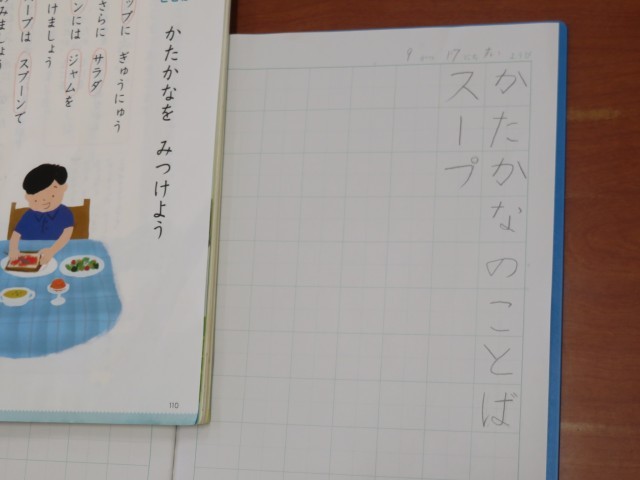 9 17
かたかなのことば
スープ
かたかなを みつけよう
ップに ぎゅうにゅう
さらに サラダ
ンには ジャムを
けましょう
ープは スプーンで
みましょう
110